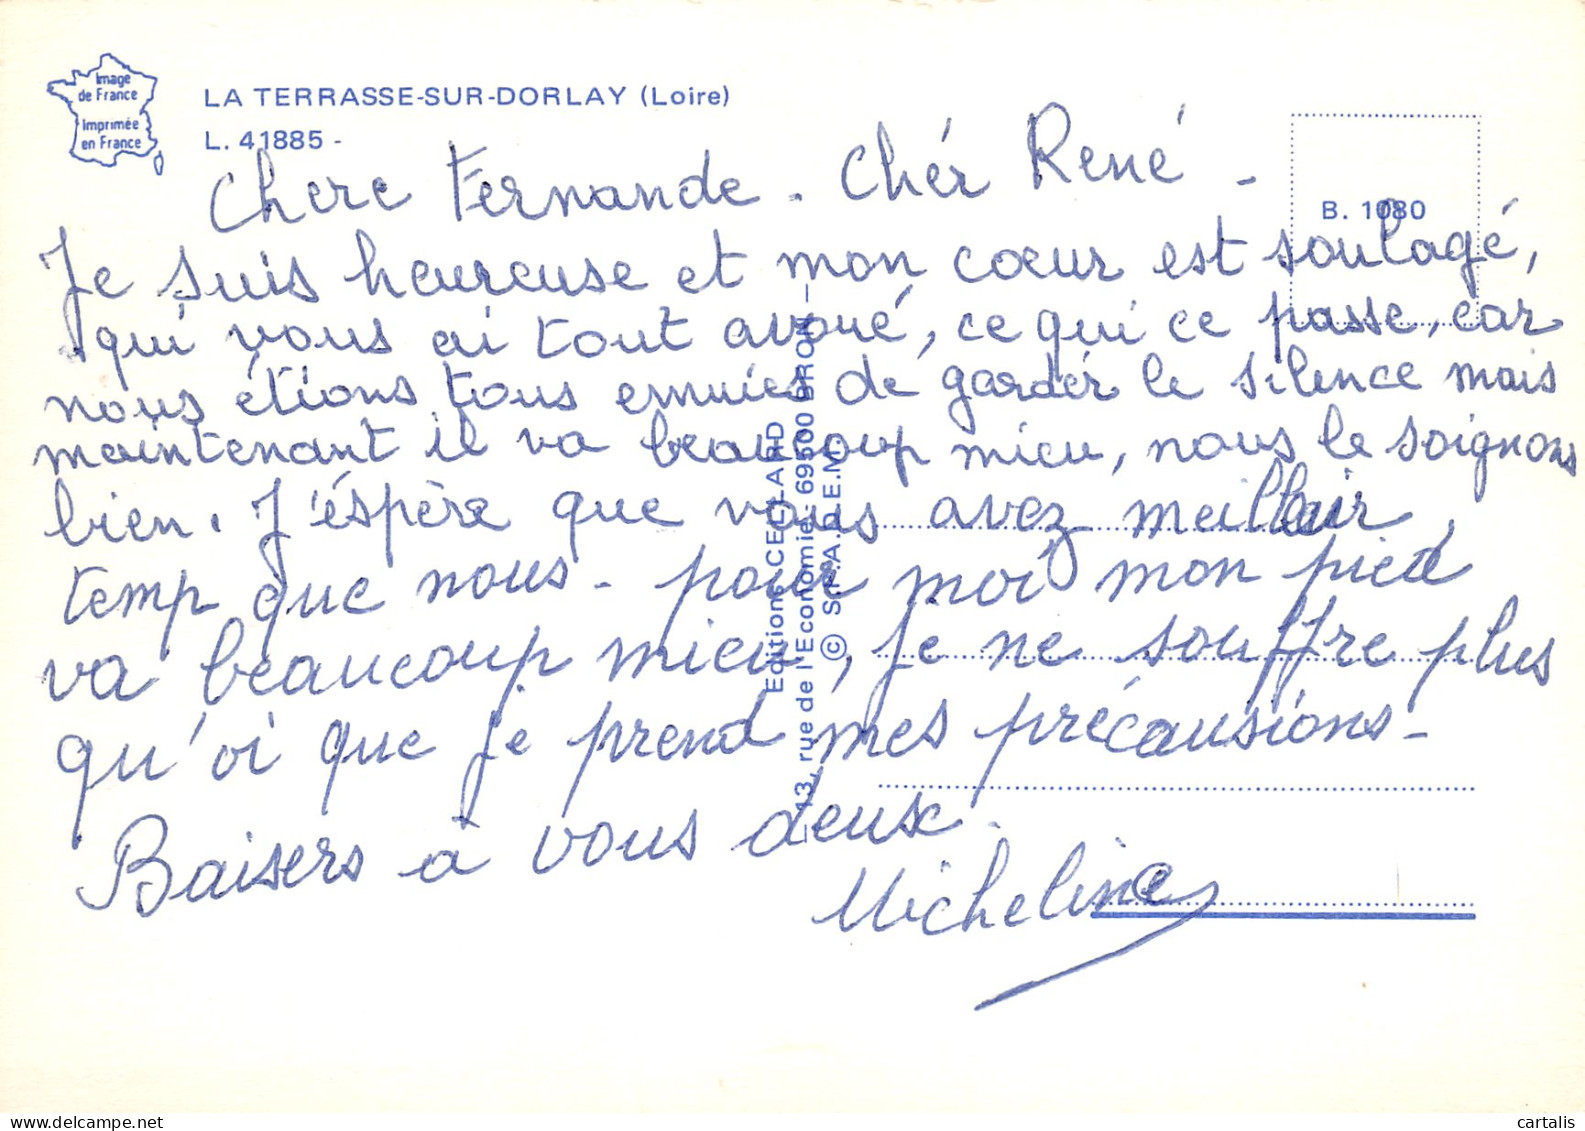 Image
de France
Imprimée
en France
LA TERRASSE-SUR-DORLAY (Loire)
L. 41885 -
B. 1080
Chere Fernande. Chér René -
Je suis heureuse et mon cœur est soulagé,
qui vous ai tout avoué, ce qui ce passe, car
nous étions tous ennuiés de gardér le silence mais
maintenant il va beaucoup mieu, nous le soignons
bien. J'éspère que vous avez meilleur
temp que nous - pour moi mon pied
va beaucoup mieu, je ne souffre plus
qu'oi que je prend mes précausions -
Baisers à vous deux.
Micheline
Editions CELLARD
13, rue de l'Economie - 69500 BRON -
© S.P.A.D.E.M.
cartalis